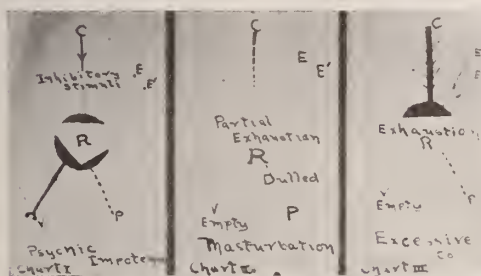 C
Inhibitory
stimuli
E
E'
R
V
P
Psychic Impote
Chart I
C
E
E'
Partial
Exhaustion
R
Dulled
V
Empty
P
Masturbation
Chart II
C
E
E
Exhaustion
R
V
Empty
P
Excessive
Co
Chart III